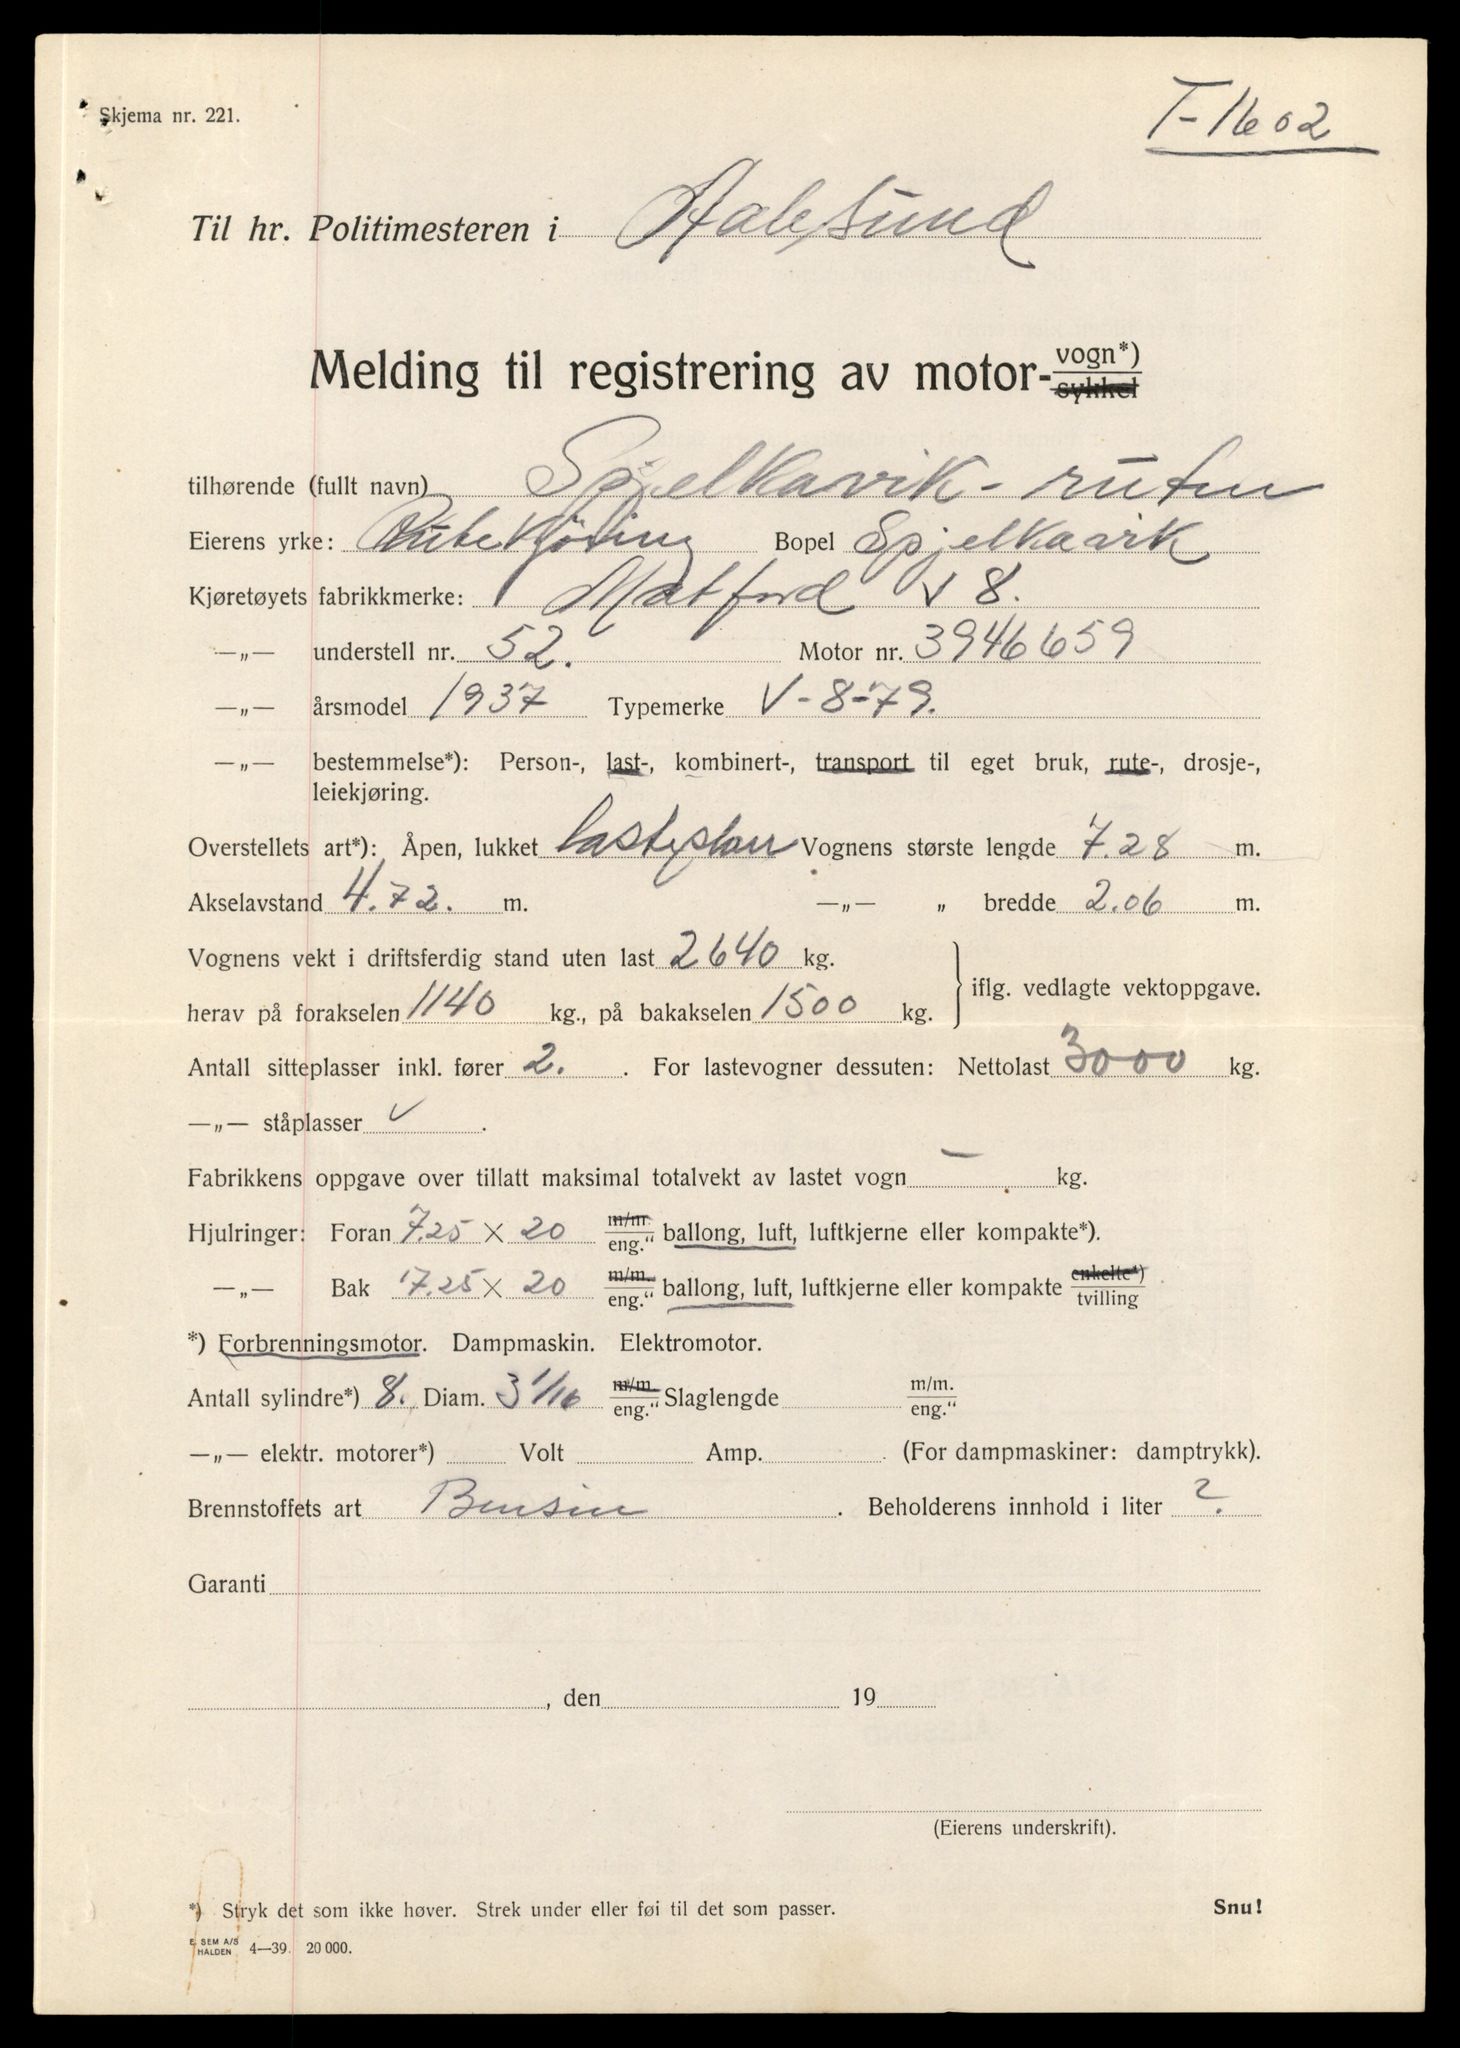 Skjema nr. 221.
T-1602
Til hr. Politimesteren i Aalesund
Melding til registrering av motor- vogn*) sykkel
tilhørende (fullt navn) Spjelkavik-ruten
Eierens yrke: Rutekjøring Bopel Spjelkavik
Kjøretøyets fabrikkmerke: Matford V 8.
—„— understell nr. 52. Motor nr. 3946659
—„— årsmodel 1937 Typemerke V-8-79.
—„— bestemmelse*): Person-, last-, kombinert-, transport til eget bruk, rute-, drosje-,
leiekjøring.
Overstellets art*): Åpen, lukket lasteplan Vognens største lengde 7.28 m.
Akselavstand 4.72. m. —„— „ bredde 2.06 m.
Vognens vekt i driftsferdig stand uten last 2640 kg.
herav på forakselen 1140 kg., på bakakselen 1500 kg. iflg. vedlagte vektoppgave.
Antall sitteplasser inkl. fører 2. . For lastevogner dessuten: Nettolast 3000 kg.
—„— ståplasser .
Fabrikkens oppgave over tillatt maksimal totalvekt av lastet vogn — kg.
Hjulringer: Foran 7.25 × 20 m/m. eng.“ ballong, luft, luftkjerne eller kompakte*).
—„— Bak 7.25 × 20 m/m. eng.“ ballong, luft, luftkjerne eller kompakte enkelte*) tvilling
*) Forbrenningsmotor. Dampmaskin. Elektromotor.
Antall sylindre*) 8. Diam. 3 1/16 m/m. eng.“ Slaglengde m/m. eng.“
—„— elektr. motorer*) Volt Amp. (For dampmaskiner: damptrykk).
Brennstoffets art Bensin . Beholderens innhold i liter ?
Garanti
, den 19
(Eierens underskrift).
*) Stryk det som ikke høver. Strek under eller føi til det som passer. Snu!
E. SEM A/S HALDEN 4—39. 20 000.